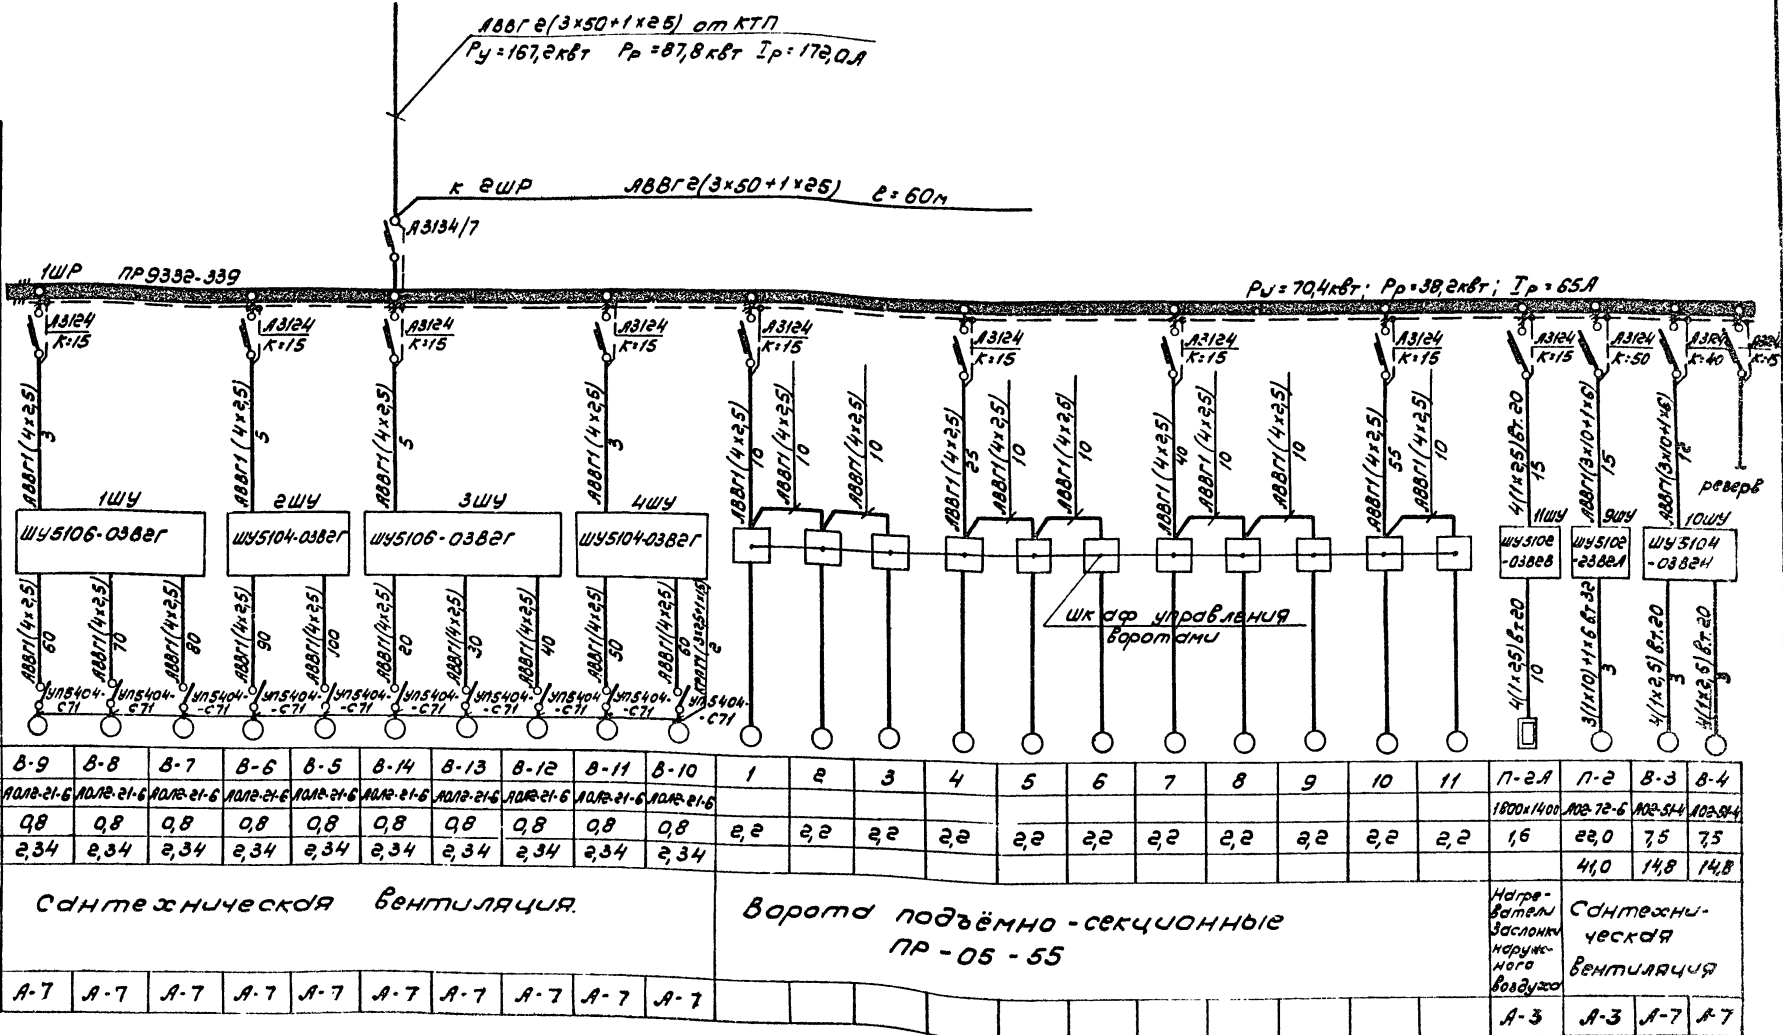 АВВГ 2(3×50+1×25) от КТП
Ру=167,2квт Рр=87,8квт Iр=172,0А
к 2ШР АВВГ2(3×50+1×25) ℓ=60м
А3134/7
1ШР ПР9332-339
Ру=70,4квт; Рр=38,2квт; Iр=65А
А3124 А3124 А3124 А3124 А3124 А3124 А3124 А3124 А3124 А3124 А3124
К=15 К=15 К=15 К=15 К=15 К=15 К=15 К=15 К=15 К=50 К=40 К=15
АВВГ1(4×2,5) 3
АВВГ1(4×2,5) 5
АВВГ1(4×2,5) 5
АВВГ1(4×2,5) 3
АВВГ1(4×2,5) 10
АВВГ1(4×2,5) 10
АВВГ1(4×2,5) 10
АВВГ1(4×2,5) 25
АВВГ1(4×2,5) 10
АВВГ1(4×2,5) 10
АВВГ1(4×2,5) 40
АВВГ1(4×2,5) 10
АВВГ1(4×2,5) 10
АВВГ1(4×2,5) 55
АВВГ1(4×2,5) 10
4(1×2,5)Вт.20 15
АВВГ1(3×10+1×6) 15
АВВГ1(3×10+1×6) 12
резерв
1ШУ 2ШУ 3ШУ 4ШУ 11ШУ 9ШУ 10ШУ
ШУ5106-03В2Г ШУ5104-03В2Г ШУ5106-03В2Г ШУ5104-03В2Г
ШУ5102 ШУ5102 ШУ5104
-03В2В -23В2Л -03В2Н
АВВГ1(4×2,5) 60
АВВГ1(4×2,5) 70
АВВГ1(4×2,5) 80
АВВГ1(4×2,5) 90
АВВГ1(4×2,5) 100
АВВГ1(4×2,5) 20
АВВГ1(4×2,5) 30
АВВГ1(4×2,5) 40
АВВГ1(4×2,5) 50
АВВГ1(4×2,5) 60
2
4(1×2,5)Вт.20 10
3(1×10)+1×6 Вт 32 3
4(1×2,5)Вт.20 3
4(1×2,5)Вт.20 3
шкаф управления
воротами
УП5404- УП5404- УП5404- УП5404- УП5404- УП5404- УП5404- УП5404- УП5404- УП5404-
С71 С71 -С71 -С71 -С71 -С71 -С71 -С71 -С71 -С71
В-9 В-8 В-7 В-6 В-5 В-14 В-13 В-12 В-11 В-10 1 2 3 4 5 6 7 8 9 10 11 П-2А П-2 В-3 В-4
АОЛ2-21-6 АОЛ2-21-6 АОЛ2-21-6 АОЛ2-21-6 АОЛ2-21-6 АОЛ2-21-6 АОЛ2-21-6 АОЛ2-21-6 АОЛ2-21-6 АОЛ2-21-6 1800×1400 АО2-72-6 АО2-51-4 АО2-51-4
0,8 0,8 0,8 0,8 0,8 0,8 0,8 0,8 0,8 0,8 2,2 2,2 2,2 2,2 2,2 2,2 2,2 2,2 2,2 2,2 2,2 1,6 22,0 7,5 7,5
2,34 2,34 2,34 2,34 2,34 2,34 2,34 2,34 2,34 2,34 41,0 14,8 14,8
Сантехническая вентиляция.
Ворота подъёмно-секционные
ПР-05-55
Нагре-
ватели
заслонки
наруж-
ного
воздуха
Сантехни-
ческая
вентиляция
А-7 А-7 А-7 А-7 А-7 А-7 А-7 А-7 А-7 А-7 А-3 А-3 А-7 А-7